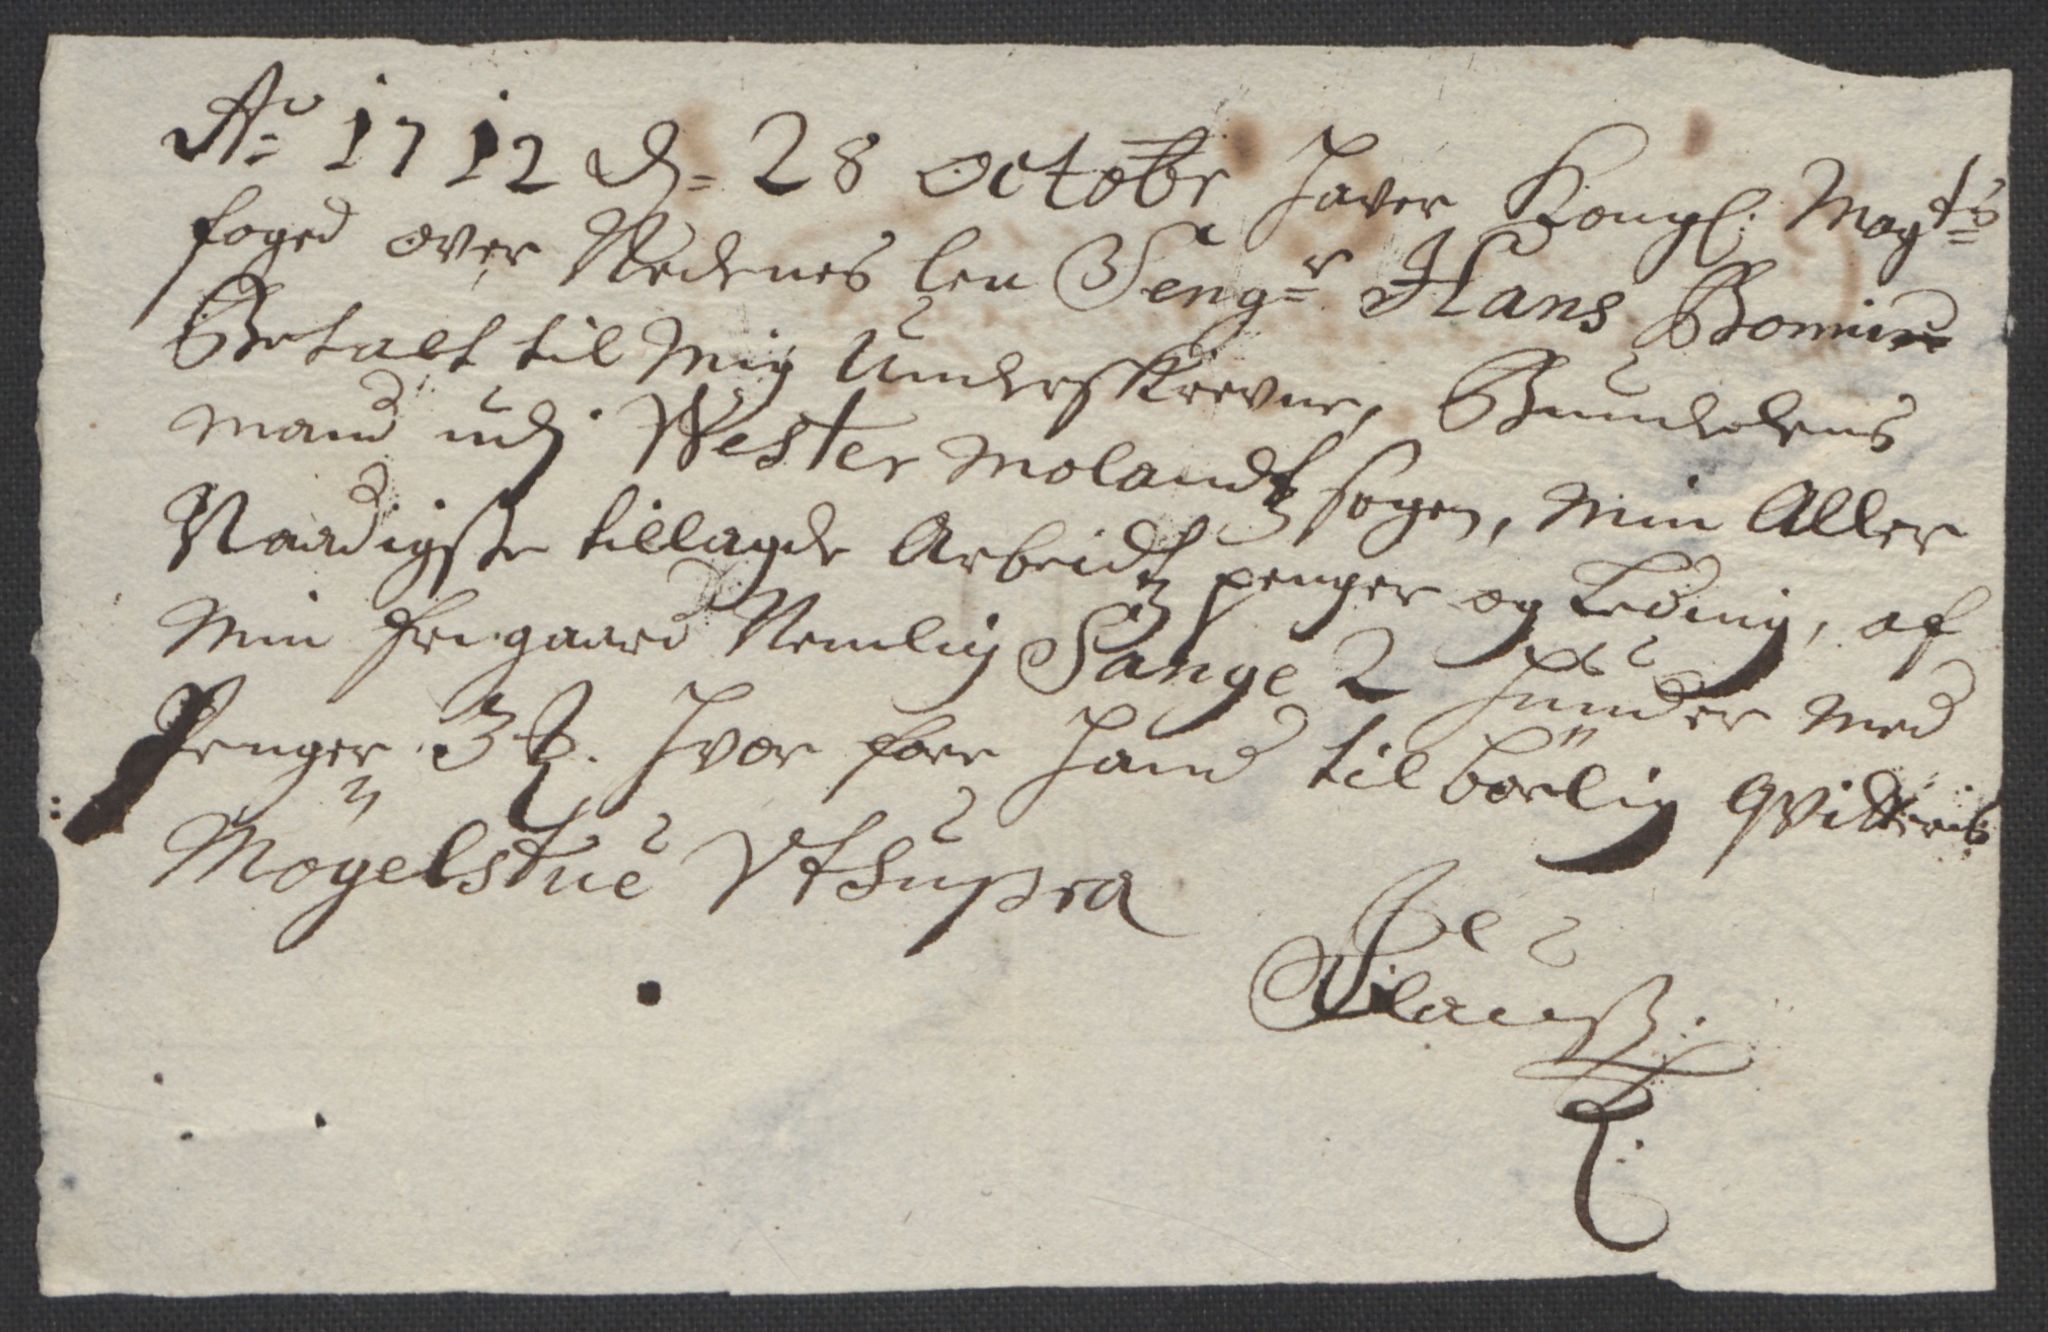 Ao 1712 d. 28 octobr haver Kongl: Mayts
foged over Nedenes len Sengr Hans Bonnir
Betalt til Mig Underskrevne, Bundelens
mand udj Wester molandtz sogen, min Aller
Naadigste tillagde Arbeidtz penger og Leding, af
Min frigaard Nemlig Sange 2 huuder med
Penger 3 hvor fore hand tilbørlig qvitteris
Møgelstue Vt supra